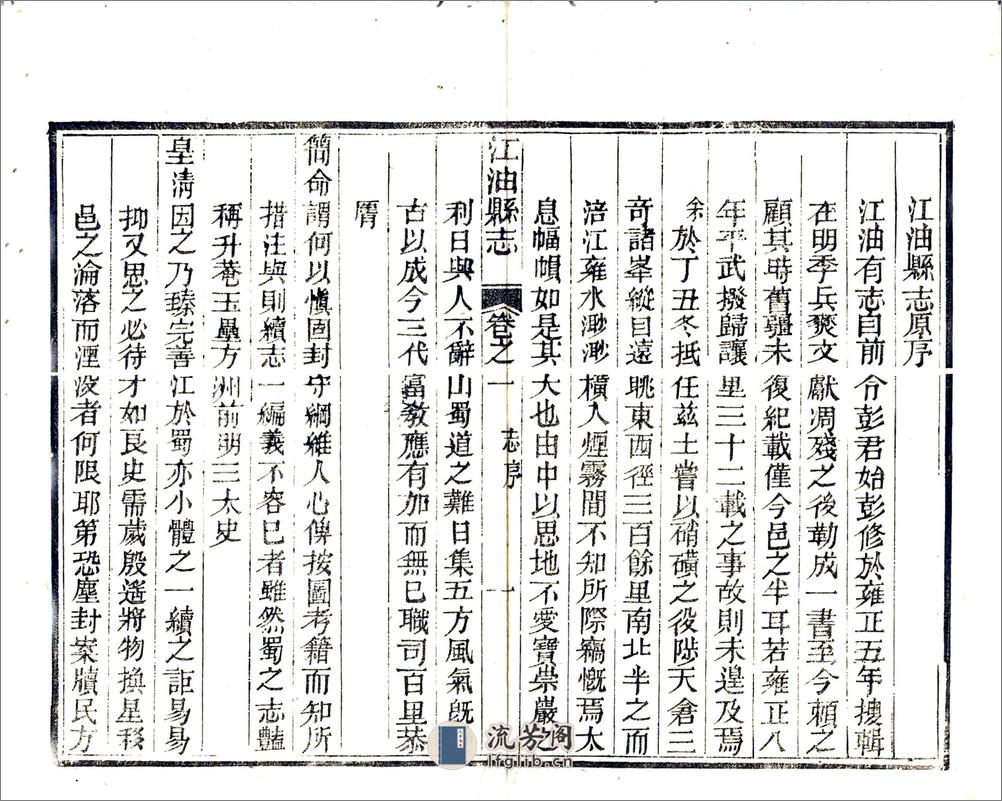 江油縣志原序
江油有志自前令彭君始彭修於雍正五年搜輯
在明季兵燹文獻凋殘之後勒成一書至今賴之
顧其時舊疆未復紀載僅今邑之半耳若雍正八
年平武撥歸讓里三十二載之事故則未遑及焉
余於丁丑冬抵任茲土嘗以硝磺之役陟天倉三
奇諸峯縱目遠眺東西徑三百餘里南北半之而
涪江雍水渺渺橫入煙霧間不知所際竊慨焉太
息幅幀如是其大也由中以思地不愛寶崇巖之
江油縣志 卷之一 志序 一
利日與人不辭山蜀道之難日集五方風氣旣
古以成今三代富敎應有加而無已職司百里恭
膺
簡命謂何以愼固封守綱維人心俾按圖考籍而知所
措注與則續志一編義不容已者雖然蜀之志豔
稱升菴玉壘方洲前明三太史
皇淸因之乃臻完善江於蜀亦小體之一續之詎易易
抑又思之必待才如良史需歲殷遥將物換星移
邑之淪落而湮沒者何限耶第恐塵封案牘民方
流芳阁
lfglib.cn